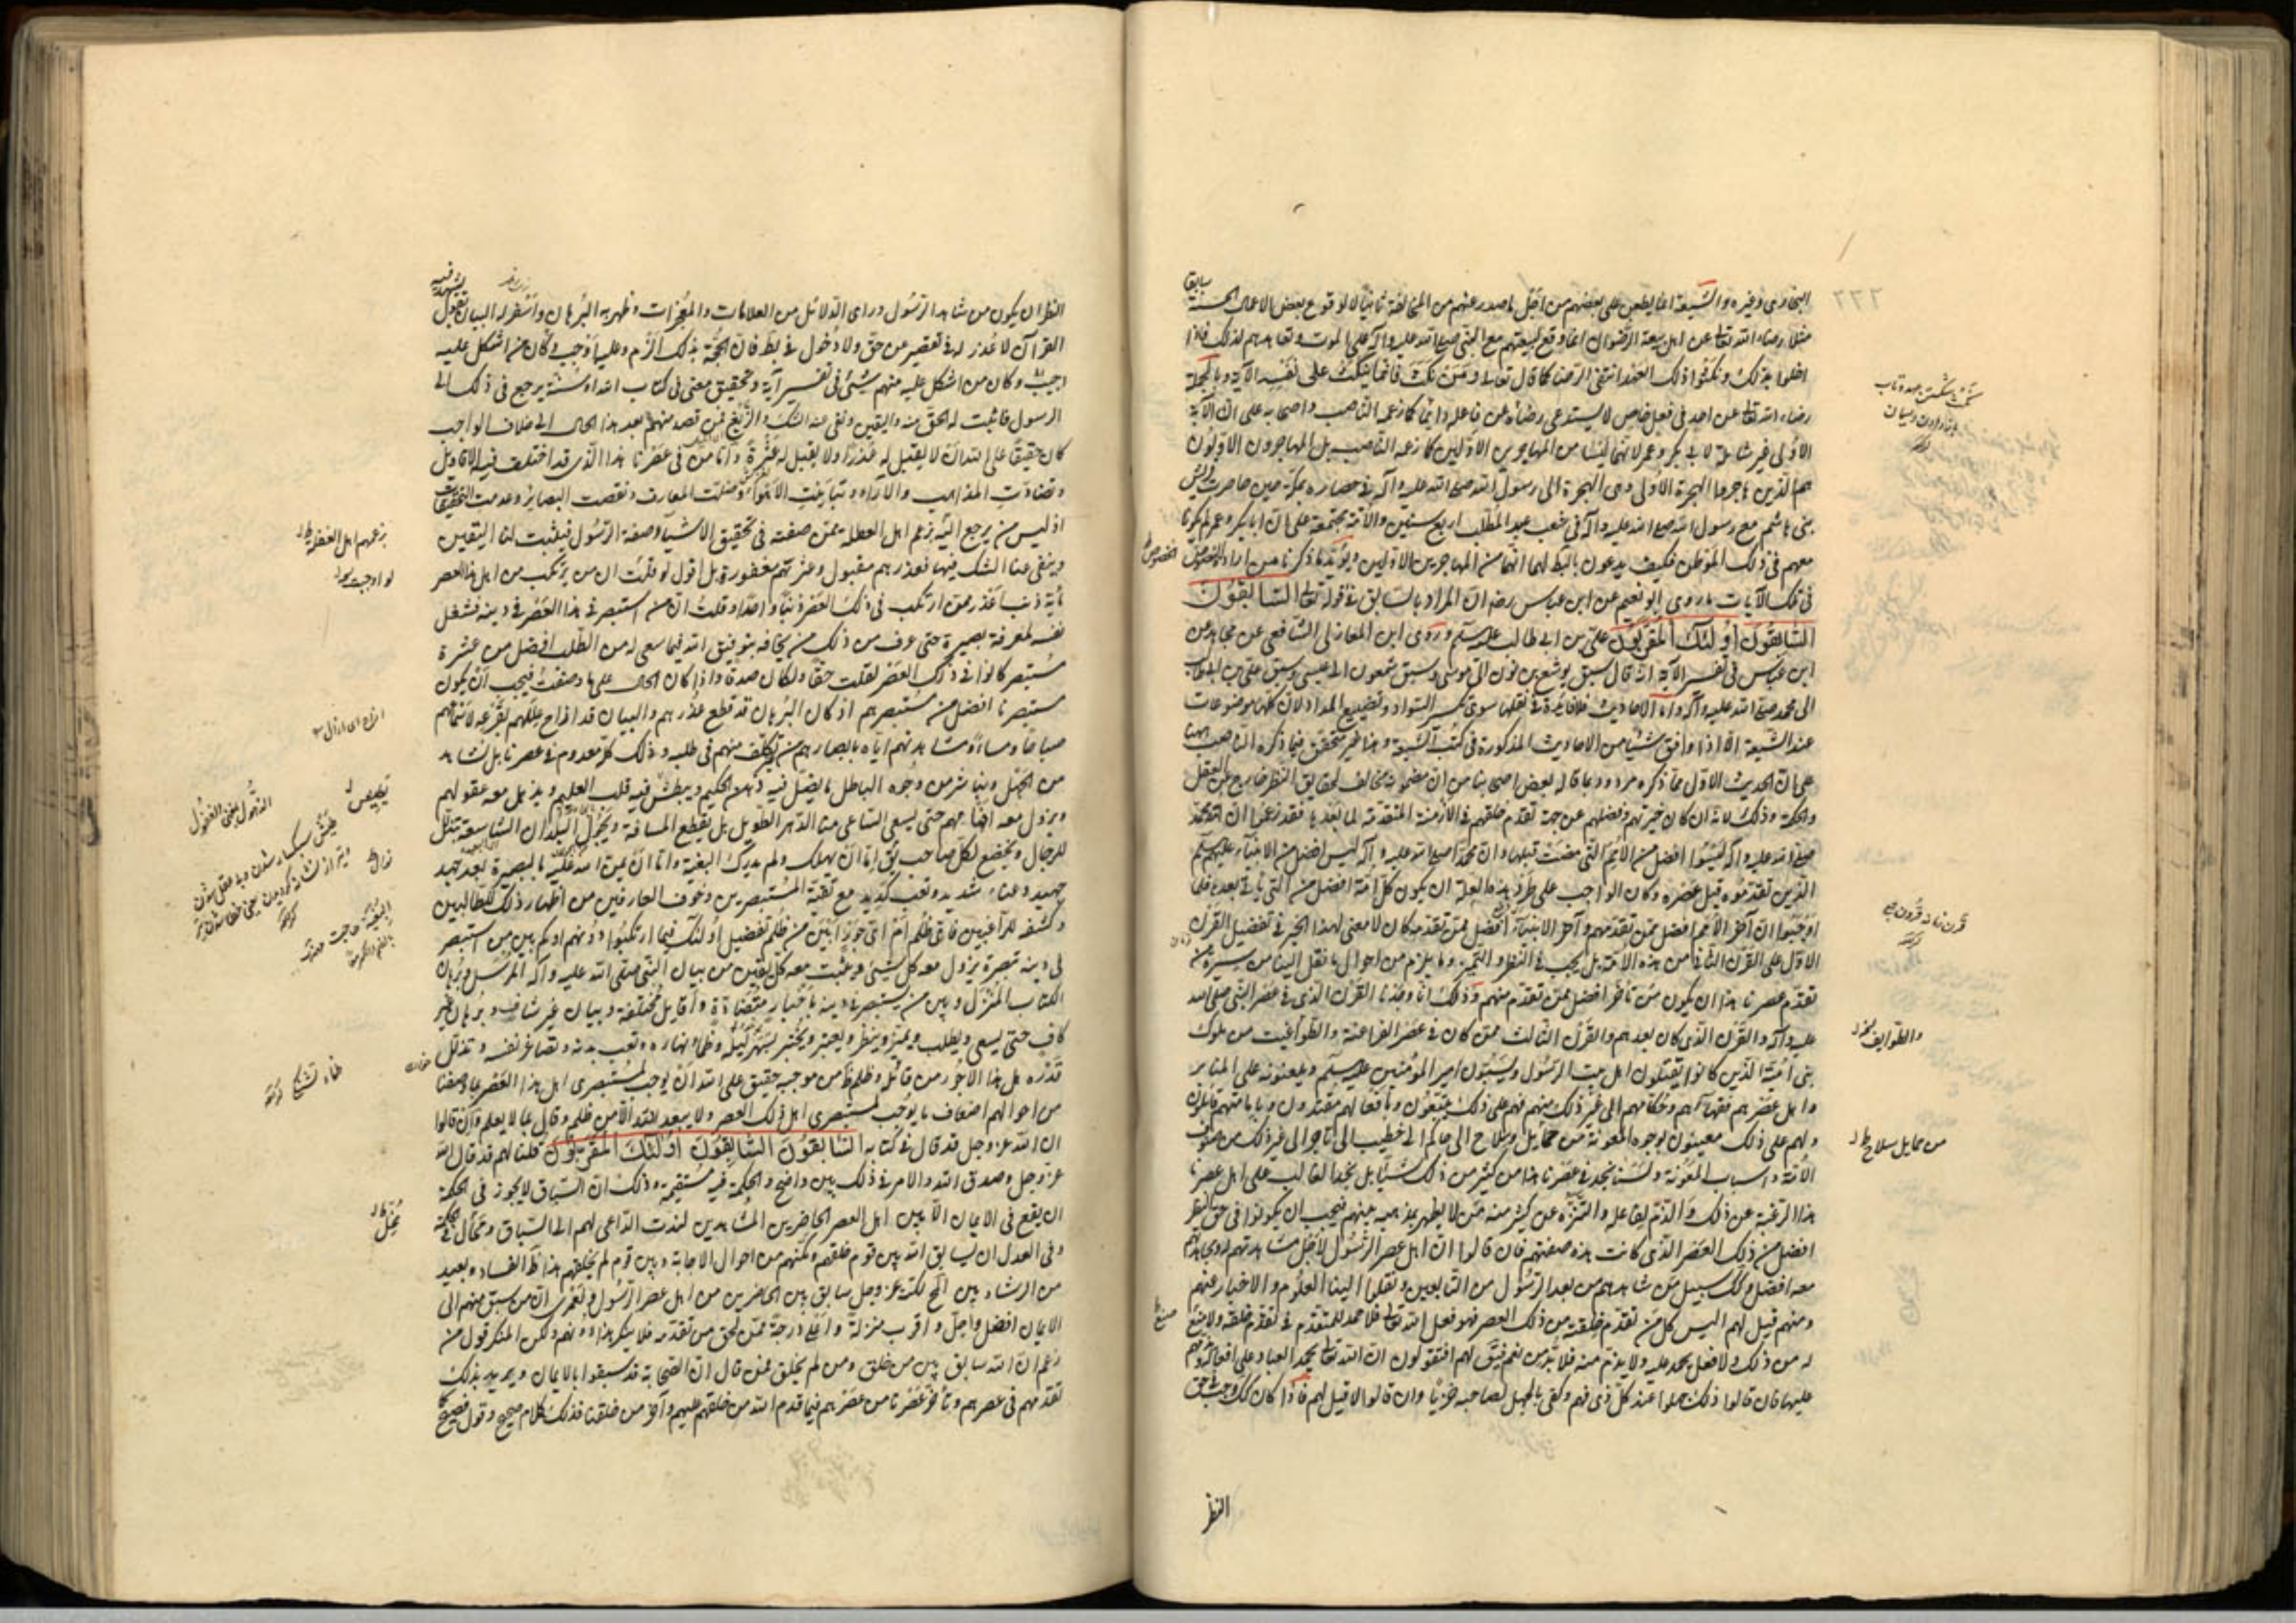 البخاری وغیره والشیعة انما یطعن علی بعضهم من اجل ما صدر عنهم من المخالفة ثانیا لا لوقوع بعض الاعمال الحسنة سابقا
مثلا رضاء الله تعالی عن اهل بیعة الرضوان انما وقع لبیعتهم مع النبی صلی الله علیه وآله علی الموت وتعاهدهم لذلک فاذا
اخلوا بذلک ونکثوا ذلک العهد انتفی الرضا کما قال تعالی ومن نکث فانما ینکث علی نفسه الآیة وبالجملة
رضاء الله تعالی عن احد فی فعل خاص لا یستدعی رضاه عن فاعله دائما کما زعمه الناصب واصحابه علی ان الآیة
الاولی غیر شاملة لابی بکر وعمر لانهما لیسا من المهاجرین الاولین کما زعمه الناصب بل المهاجرون الاولون
هم الذین هاجروا الهجرة الاولی وهی الهجرة الی رسول الله صلی الله علیه وآله فی حصاره بمکة حین حاصرت قریش
بنی هاشم مع رسول الله صلی الله علیه وآله فی شعب عبد المطلب اربع سنین والامة مجتمعة علی ان ابا بکر وعمر لم یکونا
معهم فی ذلک الموطن فکیف یدعون بالبط لهما انهما من المهاجرین الاولین ویؤید ما ذکرنا من ارادة الخصوص
فی تلک الآیات ما روی ابو نعیم عن ابن عباس رض ان المراد بالسابق فی قوله تعالی السابقون
السابقون اولئک المقربون علی بن ابی طالب علیه السلم وروی ابن المغازلی الشافعی عن مجاهد عن
ابن عباس فی تفسیر الآیة انه قال سبق یوشع بن نون الی موسی وسبق شمعون الی عیسی وسبق علی بن ابی طالب
الی محمد صلی الله علیه وآله واما الاحادیث فلا فائدة فی نقلها سوی تکثیر السواد وتضییع المداد لان کلها موضوعات
عند الشیعة الا اذا وافق شیئا من الاحادیث المذکورة فی کتب الشیعة وهذا غیر متحقق فیما ذکره الناصب ههنا
علی ان الحدیث الاول مما ذکره مردود بما قاله بعض اصحابنا من ان مضمونه مخالف لحقایق النظر خارج عن العقل
والحکمة وذلک لانه ان کان خیرتهم وفضلهم من جهة تقدم خلقهم فی الازمنة المتقدمة لما بعدها فقد زعموا ان امة محمد
صلی الله علیه وآله لیسوا افضل من الامم التی مضت قبلها وان محمدا صلی الله علیه وآله لیس افضل من الانبیاء علیهم السلم
الذین تقدموه قبل عصره وکان الواجب علی طرد هذه العلة ان یکون کل امة افضل من التی یاتی بعدها فلما
اوجبوا ان آخر الامم افضل ممن تقدمهم وآخر الانبیاء افضل ممن تقدمه کان لا معنی لهذا الخبر فی تفضیل القرن
الاول علی القرن الثانی من هذه الامة بل یجب فی النظر والتمییز وما یلزم من احوال ما نقل الینا من سیرة من
تقدم عصرنا هذا ان یکون من تاخر افضل ممن تقدم منهم وذلک انا وجدنا القرن الذی فی عصر النبی صلی الله
علیه وآله والقرن الذی کان بعدهم والقرن الثالث ممن کان فی عصر الفراعنة والطواغیت من ملوک
بنی امیة الذین کانوا یقتلون اهل بیت الرسول ویسبون امیر المؤمنین علیه السلم ویلعنونه علی المنابر
واهل عصرهم فقهاءهم وحکامهم الی غیر ذلک منهم فهم علی ذلک متبعون وبافعالهم مقتدون وبامامتهم قائلون
ولهم علی ذلک معینون بوجوه المعونة من حمایل وسلاح الی حاکم الی خطیب الی تاجر الی غیر ذلک من صنوف
الامة واسباب المعونة ولسنا نجد فی عصرنا هذا من کثیر من ذلک شیئا بل نجد الغالب علی اهل عصرنا
هذا الرغبة عن ذلک والذم لفاعله والتنزه عن کثیر منه ممن لا یظهر مذهبه بینهم فیجب ان یکونوا فی حق النظر
افضل من ذلک العصر الذی کانت هذه صفتهم فان قالوا ان اهل عصر الرسول لاجل مشاهدتهم له وجهادهم
معه افضل وکذلک سبیل من شاهدهم من بعد الرسول من التابعین ونقلوا الینا العلوم والاخبار عنهم
ومنهم قیل لهم الیس کل من تقدم خلقه من ذلک العصر فهو فعل الله تعالی فلا حمد للمتقدم فی تقدم خلقه ولا صنع
له من ذلک ولا فعل یحمد علیه ولا یذم منه فلا بد من نعم فیقال لهم افتقولون ان الله تعالی یحمد العباد علی افعاله ویذمهم
علیها فان قالوا ذلک جهلوا عند کل ذی فهم وکفی بالجهل لصاحبه خزیا وان قالوا لا قیل لهم فاذا کان کذلک وجب فی حق
النظر
النظر ان یکون من شاهد الرسول ورای الدلائل من العلامات والمعجزات وظهر له البرهان واسفر له البیان بنقول
القرآن لا عذر له فی تقصیر عن حق ولا دخول فی بط فان الحجة بذلک الزم وعلیه اوجب وکان من اشکل علیه
اجیب وکان من اشکل علیه منهم شیئ فی تفسیر آیة وتحقیق معنی فی کتاب الله او سنة یرجع فی ذلک الی
الرسول فاثبت له الحق منه والیقین ونفی عنه الشک والزیغ فمن قصد منهم بعد هذا الحال الی خلاف الواجب
کان حقیقا علی الله ان لا یقبل له عذرا ولا یقیل له عثرة واما من فی عصرنا هذا الذی قد اختلفت فیه الاقاویل
وتضادت المذاهب والآراء وتباینت الاهواء وضلت المعارف ونقصت البصایر وعدمت التحقیقات
اذ لیس من یرجع الیه زعم اهل الغفلة ممن صفته فی تحقیق الاشیاء وصفة الرسول فیثبت لنا الیقین
وینفی عنا الشک فیها فعذرهم مقبول وعثرتهم مغفورة بل اقول لو قلت ان من یرتکب من اهل هذا العصر
مایة ذنب اعذر ممن ارتکب فی ذلک العصر ذنبا واحدا وقلت ان من استبصر فی هذا العصر فی دینه فشغل
نفسه لمعرفة بصیرة حتی عرف من ذلک من نجاته بتوفیق الله فیما سعی له من الطلب افضل من عشرة
مستبصر کانوا فی ذلک العصر لقلت حقا ولکان صدقا واذا کان الحال علی ما وصفت فیجب ان یکون
مستبصرنا افضل من مستبصرهم اذ کان البرهان قد قطع عذرهم والبیان قد ازاح عللهم بقرعه لاسماعهم
صباحا ومساء ومشاهدتهم ایاه بابصارهم من غیر تکلف منهم فی طلبه وذلک کله معدوم فی عصرنا بل نشاهد
من الجهل ونباشر من وجوه الباطل ما یضل فیه ذهن الحکیم ویبطش فیه قلب العلیم ویذهل معه عقولهم
ویزول معه افهامهم حتی یسعی الساعی منا الدهر الطویل بل یقطع المسافة ویجول البلدان الشاسعة بتذلل
للرجال ویخضع لکل صاحب بق اما ان یهلک ولم یدرک البغیة واما ان یمن الله علیه بالبصیرة بعد جهد
جهید وعناء شدید وتعب کدید مع تقیة المستبصرین وخوف العارفین من اظهار ذلک للطالبین
وکشفه للراغبین فای ظلم ام ای جور ابین من ظلم تفضیل اولئک فیما ارتکبوا
فی دینه تبصرة یزول معه کل شیئ ویثبت معه کل یقین من بیان النبی صلی الله علیه وآله المرسل وبرهان
الکتاب المنزل وبین من یستبصر فی دینه باخبار متضادة واقاویل مختلفة وبیان غیر شاف وبرهان غیر
کاف حتی یسعی ویطلب ویمیز وینظر ویعتبر ویختبر بسهر لیله وظماء نهاره وتعب بدنه وتصاغر نفسه وتذلل
قدره هل هذا الا جور من قائله وظلم ظ من موجبه حقیق علی الله ان یوجب لمستبصری اهل هذا العصر بما وصفنا
من احوالهم اضعاف ما یوجب لمستبصری اهل ذلک العصر ولا یبعد لله الا من ظلم وقال بما لا یعلم وان قالوا
ان الله عز وجل قد قال فی کتابه السابقون السابقون اولئک المقربون قلنا لهم قد قال الله
عز وجل وصدق الله والامر فی ذلک بین واضح والحکمة فیه مستقیمة وذلک ان السباق لا یجوز فی الحکمة
ان یقع فی الایمان الا بین اهل العصر الحاضرین المشاهدین لندب الداعی لهم الی السباق ومحال فی الحکمة
وفی العدل ان یسابق الله بین قوم خلقهم ومکنهم من احوال الاجابة وبین قوم لم یخلقهم هذا ظ الفساد وبعید
من الرشاد بین الخ لکنه عز وجل سابق بین الحاضرین من اهل عصر الرسول ولعمری ان من سبق منهم الی
الایمان افضل واجل واقرب منزلة واعلی درجة ممن لحق من تقدمه فلا ینکر هذا ذو فهم ولکن المنکر قول من
زعم ان الله سابق بین من خلق ومن لم یخلق فمن قال ان الصحابة قد سبقوا بالایمان ویرید بذلک
تقدمهم فی عصرهم وتاخر عصرنا من عصرهم فیما قدم الله من خلقهم علیهم وآخر من خلقنا فذلک کلام صحیح وقول فصیح